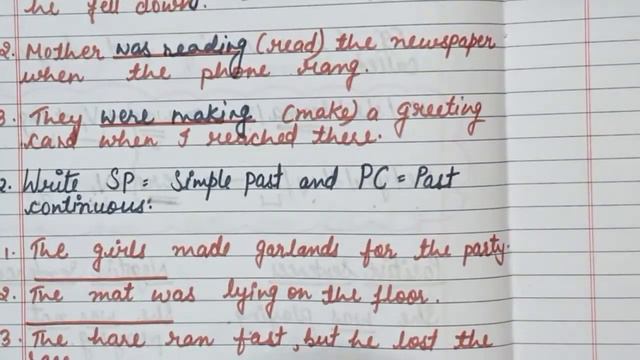 he fell down.
2. Mother was reading (read) the newspaper
when the phone rang.
3. They were making (make) a greeting
card when I reached there.
2. Write SP = Simple past and PC = Past
continuous:
1. The girls made garlands for the party.
2. The mat was lying on the floor.
3. The hare ran fast, but he lost the